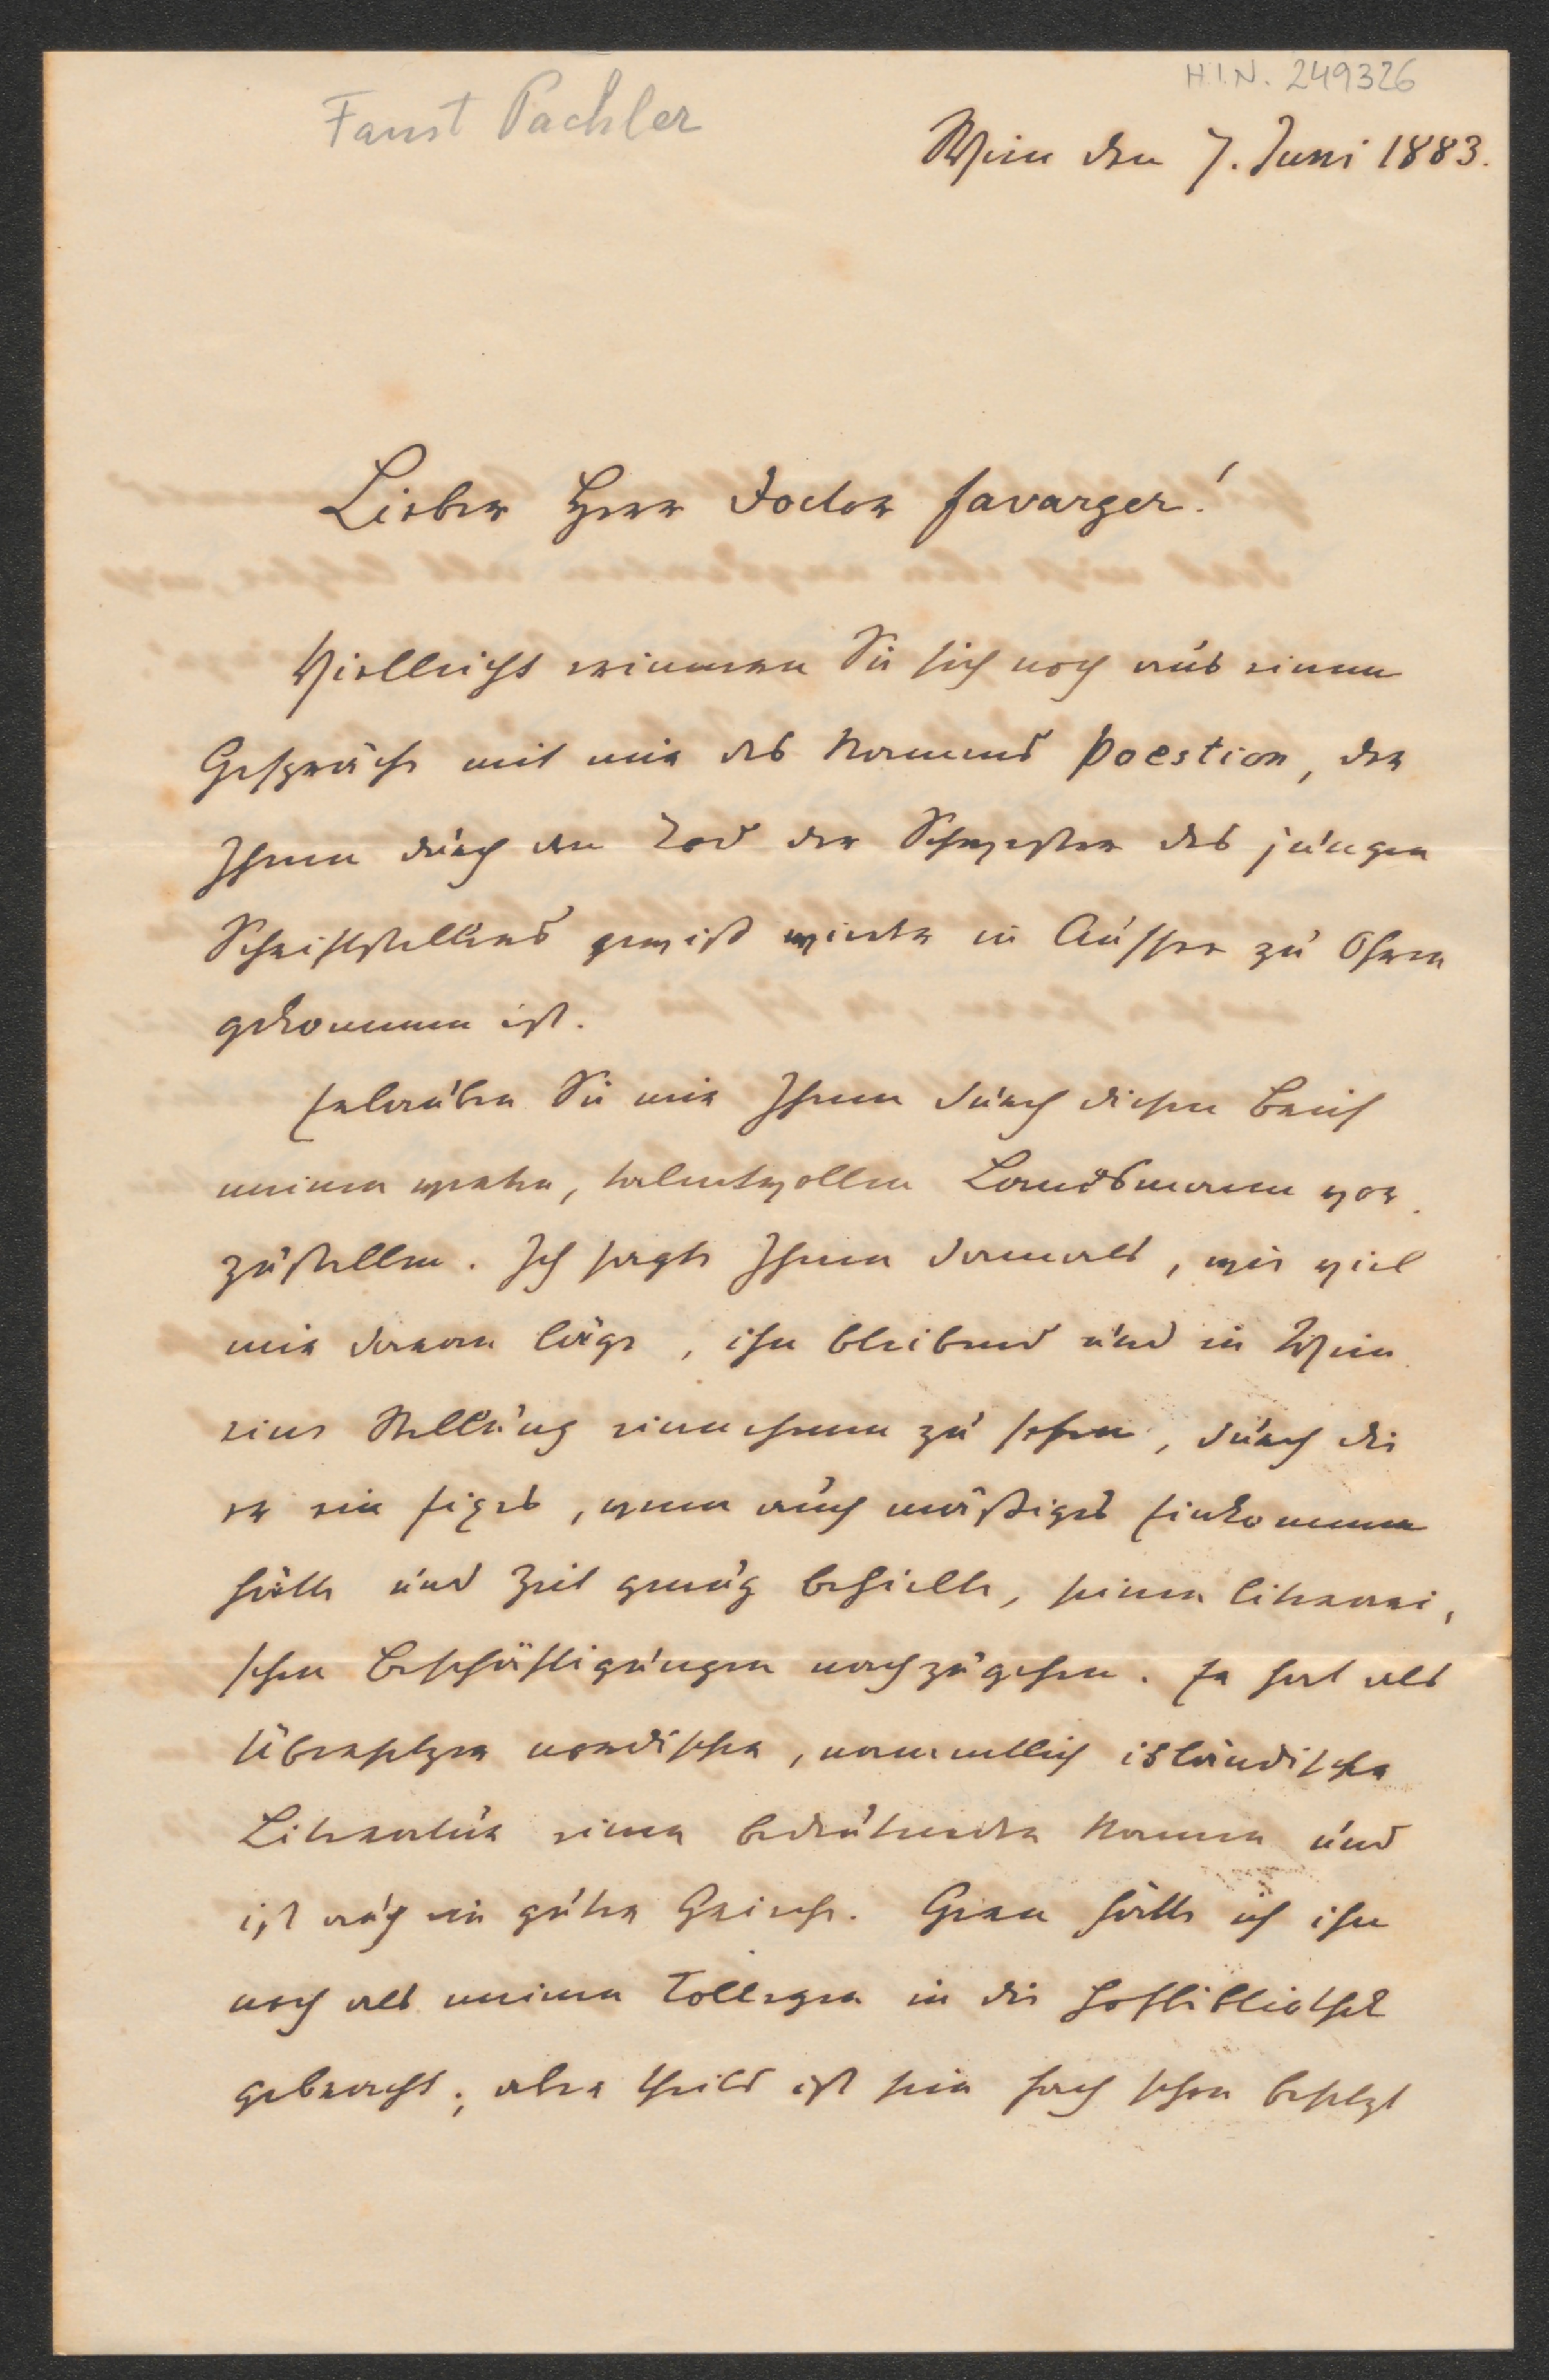 H.I.N. 249326
Faust Pachler
Wien den 7. Juni 1883.
Lieber Herr Doctor Favarger!
Vielleicht erinnern Sie sich noch aus einem
Gespräche mit mir des Namens Poestion, der
Ihnen durch den Tod der Schwester des jungen
Schriftstellers gewiß wieder in Aussee zu Ohren
gekommen ist.
Erlauben Sie mir Ihnen durch diesen Brief
meinen werten, talentvollen Landsmann vor
zustellen. Ich sagte Ihnen damals, wie viel
mir daran läge, ihn bleibend und in Wien
eine Stellung einnehmen zu sehen, durch die
er ein fixes, wenn auch mäßiges Einkommen
hätte und Zeit genug behielte, seinen literari,
schen Beschäftigungen nachzugehen. Er hat als
Übersetzer nordischer, namentlich isländischer
Literatur einen bedeutenden Namen und
ist auch ein guter Grieche. Gern hätte ich ihn
noch als meinen Collegen in die Hofbibliothek
gebracht; aber theils ist sein Fach schon besetzt